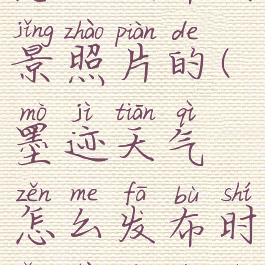 jǐng zhào piàn de
景照片的(
mò jì tiān qì
墨迹天气
zěn me fā bù shí
怎么发布时